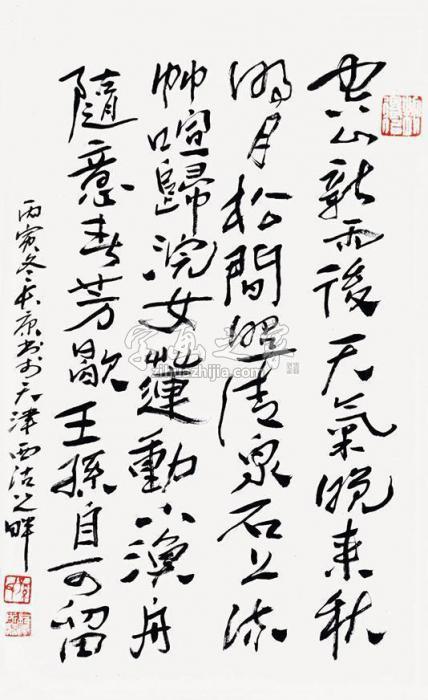 空山新雨後天氣晚来秋
明月松間照清泉石上流
竹喧歸浣女蓮動下漁舟
隨意春芳歇王孫自可留
丙寅冬 书於天津西沽之畔
字画之家
zihuazhijia.com